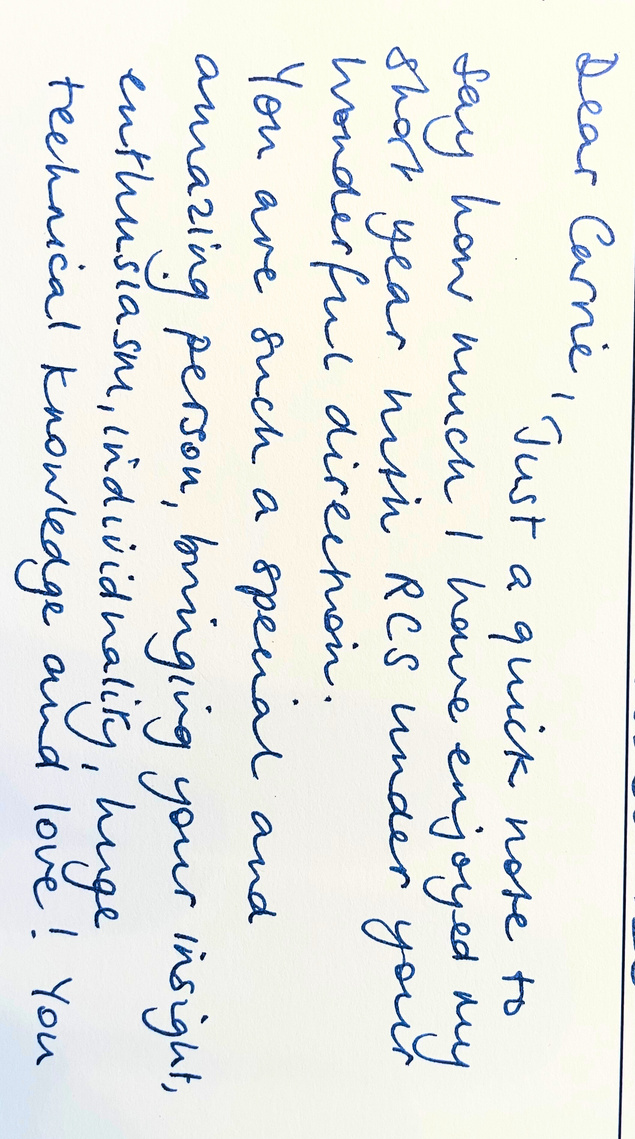 Dear Carrie,
Just a quick note to
say how much I have enjoyed my
short year with RCS under your
wonderful direction.
You are such a special and
amazing person, bringing your insight,
enthusiasm, individuality, huge
technical knowledge and love! You